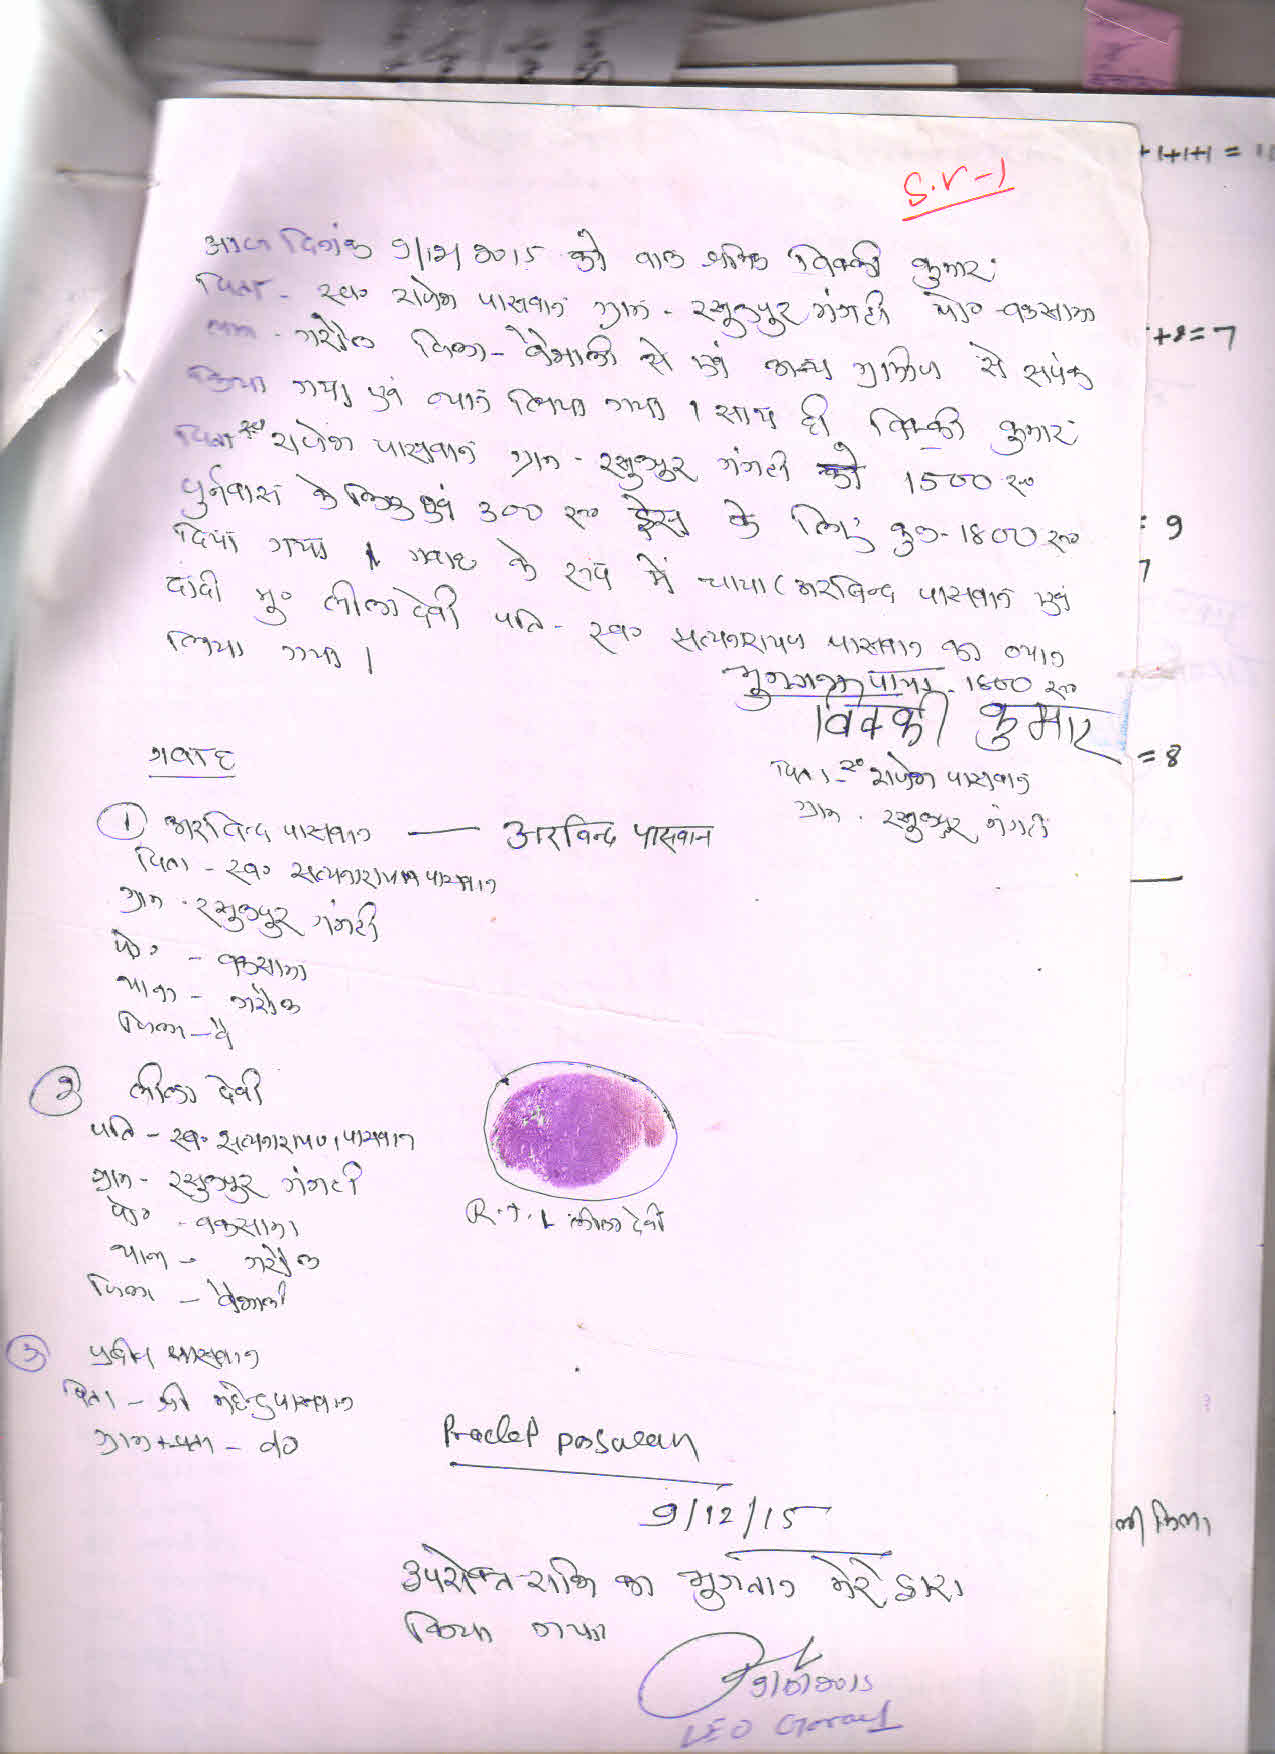 S.r-1
आज दिनांक 9/12/2015 को बाल श्रमिक विक्की कुमार
पिता - स्व० राजेश पासवान ग्राम - रसुलपुर गंगटी पो० - बकसामा
थाना - गोरौल जिला - वैशाली से एवं अन्य ग्रामीण से सपंर्क
किया गया एवं ब्यान लिया गया । साथ ही विक्की कुमार
पिता स्व० राजेश पासवान ग्राम - रसुलपुर गंगटी को 1500 रू०
पुर्नवास के लिए एवं 300 रू० ड्रेस के लिए कुल - 1800 रू०
दिया गया । गवाह के रूप में चाचा (अरबिन्द पासवान एवं
दादी मु० लीला देवी पति - स्व० सत्यनारायण पासवान का ब्यान
लिया गया ।
पाया - 1800 रू०
विक्की कुमार
पिता - स्व० राजेश पासवान
ग्राम - रसुलपुर गंगटी
गवाह
① अरविन्द पासवान — अरविन्द पासवान
पिता - स्व० सत्यनारायण पासवान
ग्राम - रसुलपुर गंगटी
पो० - बकसामा
थाना - गोरौल
जिला - वै
② लीला देवी
पति - स्व० सत्यनारायण पासवान
ग्राम - रसुलपुर गंगटी
पो० - बकसामा
थाना - गोरौल
जिला - वैशाली
R.T.I. लीला देवी
③ प्रदीप पासवान
पिता - श्री महेन्द्र पासवान
ग्राम - do
Pradep pasawan
9/12/15
उपरोक्त राशि का भुगतान मेरे द्वारा
किया गया
LEO Goraul
+1+1+1 =
+2=7
= 9
7
= 8